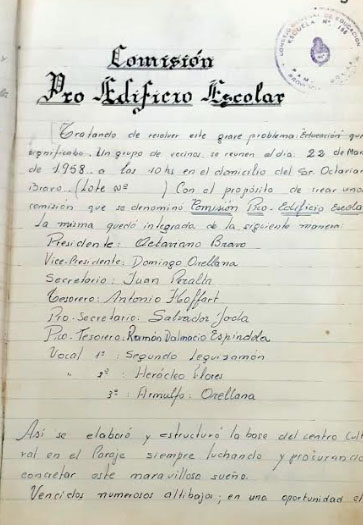 CONSEJO PROVINCIAL DE EDUCACION
ESCUELA Nº
Comisión
Pro Edificio Escolar
Tratando de resolver este grave problema: Educación que
significaba. Un grupo de vecinos, se reunen el día: 22 de Mar
de 1958 a las 10 hs en el domicilio del Sr. Octavian
Bravo. (Lote Nº ) Con el propósito de crear una
comisión que se denominó Comisión Pro-Edificio Escola
La misma quedó integrada de la siguiente manera:
Presidente: Octaviano Bravo
Vice-Presidente: Domingo Orellana
Secretario: Juan Peralta
Tesorero: Antonio Hoffart
Pro-Secretario: Salvador Joola
Pro-Tesorero: Ramón Dalmacio Espindola
Vocal 1º: Segundo Leguizamón
" 2º: Herócleo Flores
3º: Arnulfo Orellana
Así se elaboró y estructuró la base del centro Cult
ral en el Paraje siempre luchando y procurando
concretar este maravilloso sueño.
Vencidos numerosos altibajos; en una oportunidad el